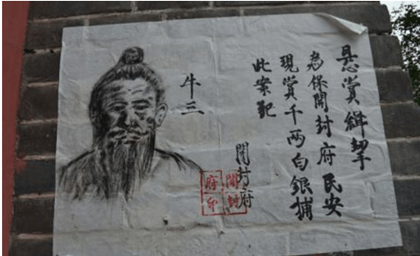 悬赏缉拏
為保開封府民安
現賞千两白銀捕
此案犯
開封府
牛三
開封
府印